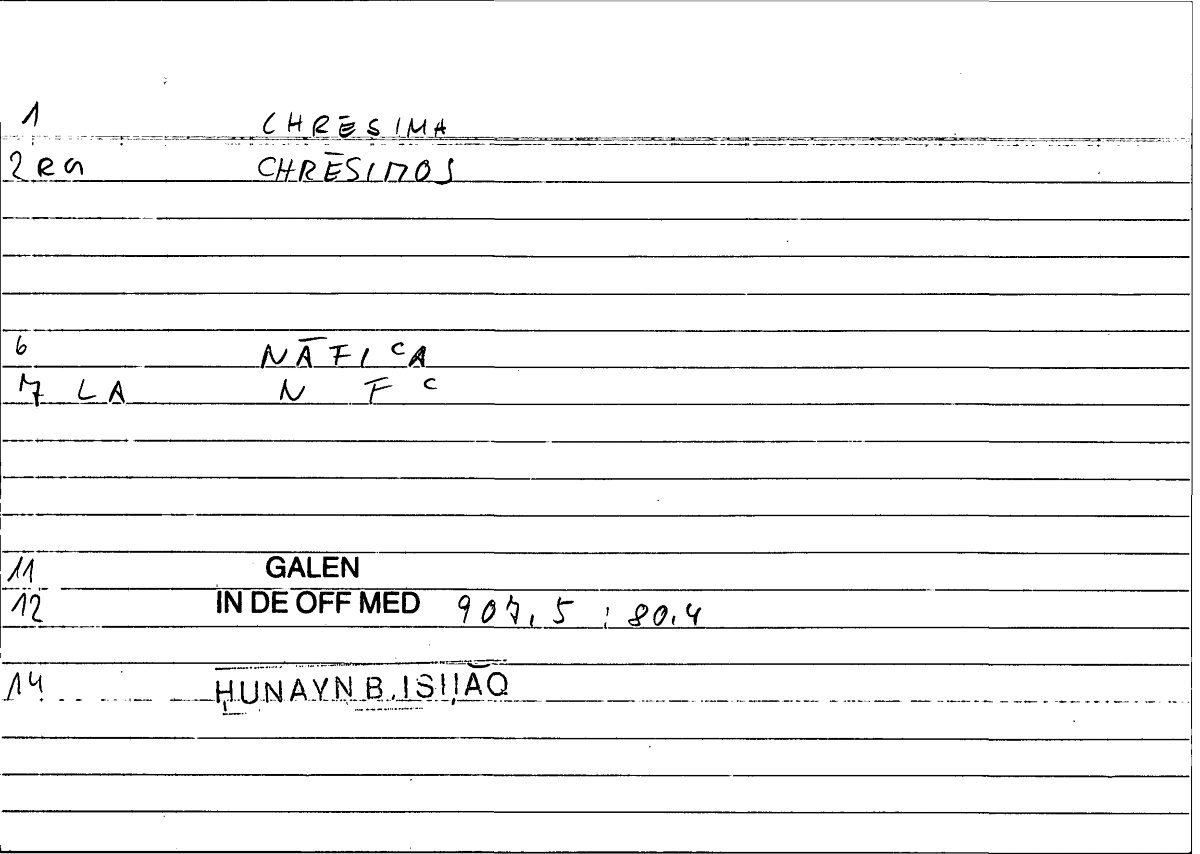 1 CHRĒSIMA
2 ea CHRĒSIMOS
6 NĀFIᶜA
7 LA N F ᶜ
11 GALEN
12 IN DE OFF MED 907,5 : 80.4
14 ḤUNAYN B. ISḤĀQ